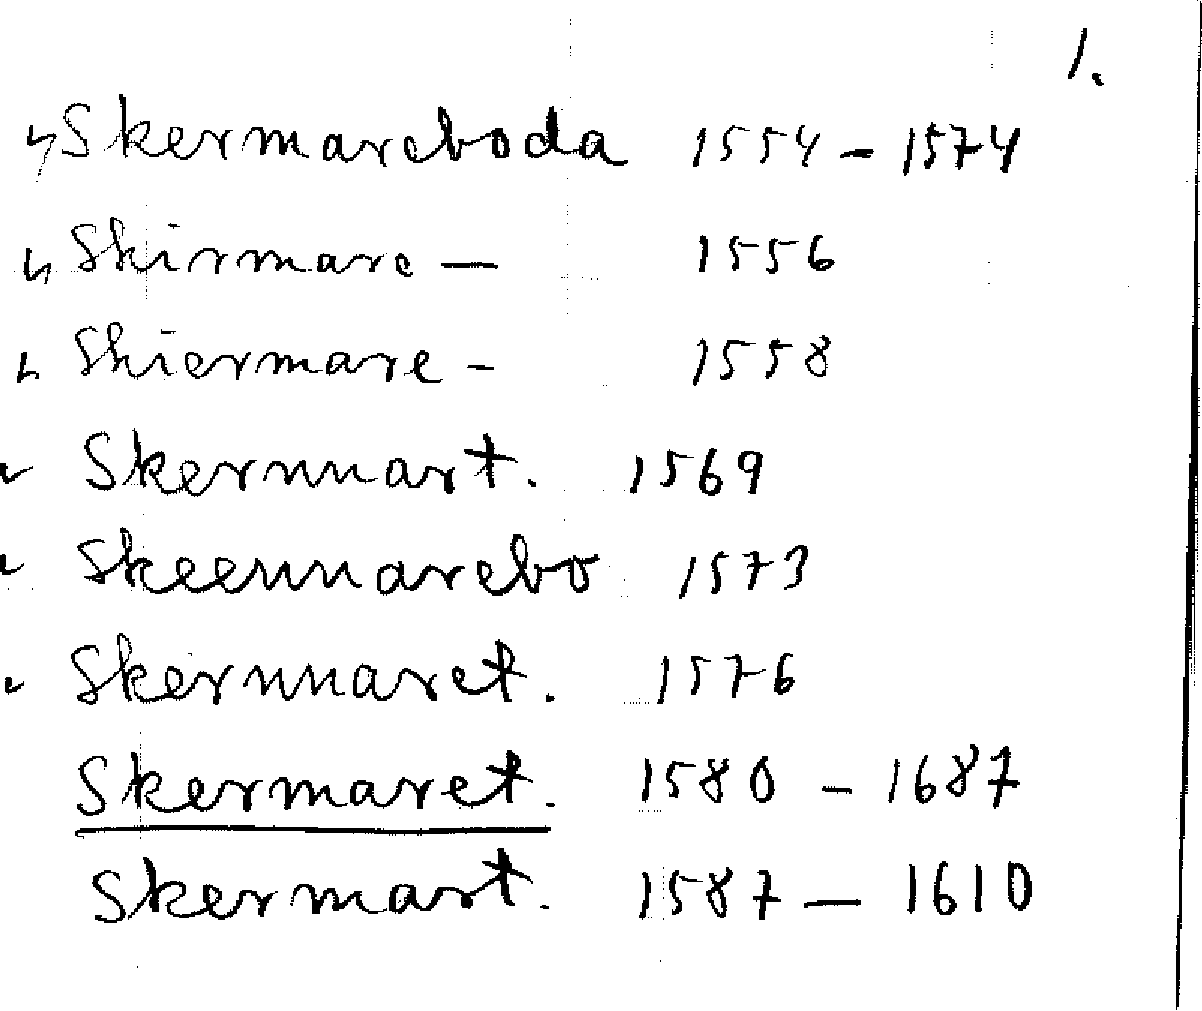 1.
Skermareboda 1554 - 1574
Skirmare - 1556
Skiermare - 1558
Skernnart. 1569
Skeernnarebo 1573
Skernnaret. 1576
Skermaret. 1580 - 1687
Skermart. 1587 - 1610